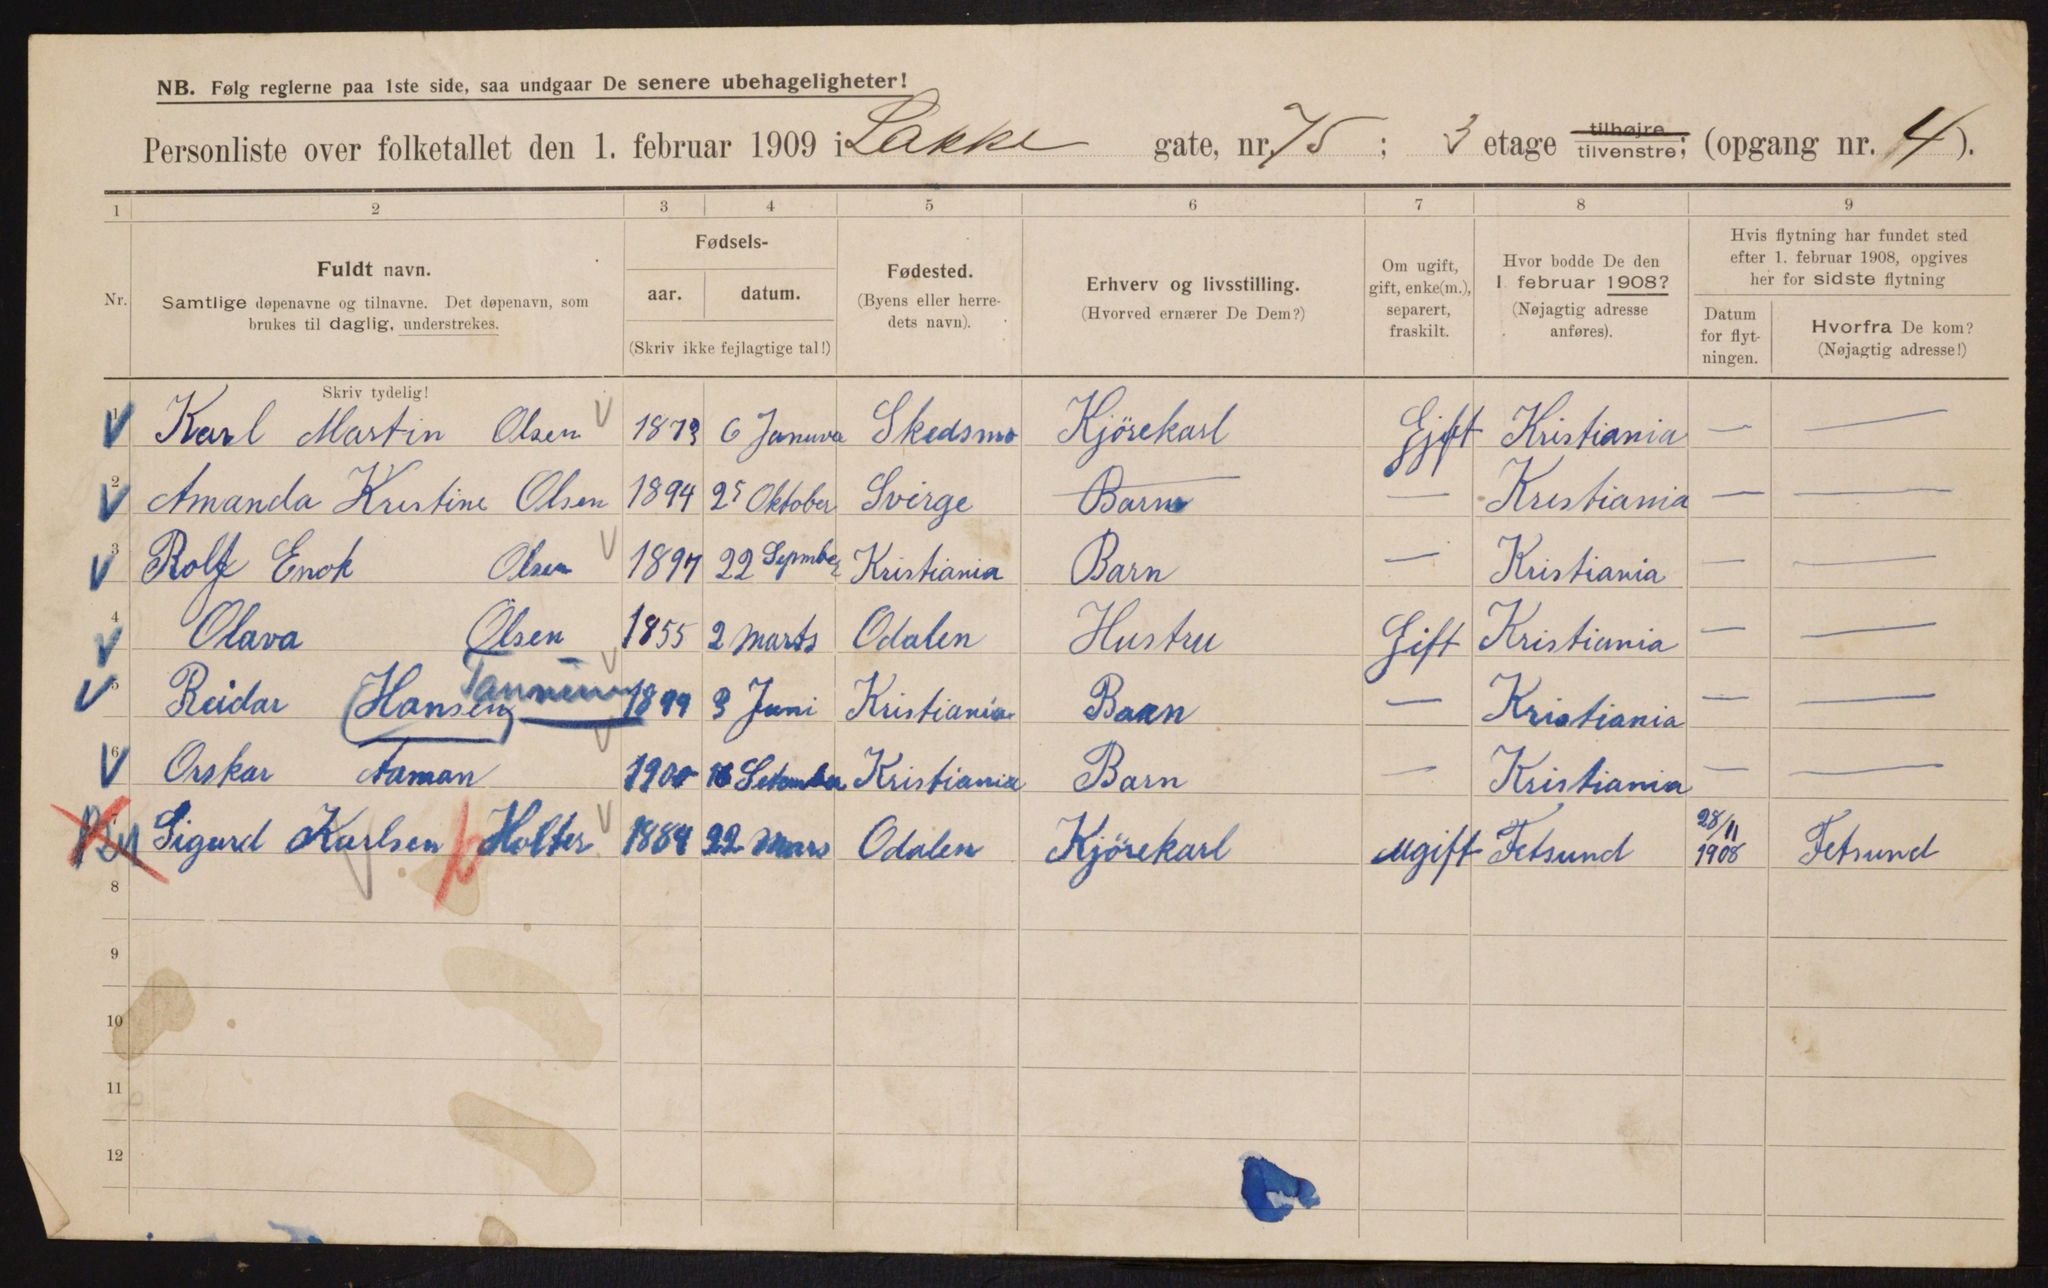 NB. Følg reglerne paa 1ste side, saa undgaar De senere ubehageligheter!
Personliste over folketallet den 1. februar 1909 i Lakke gate, nr. 75 ; 3 etage tilhøjre tilvenstre; (opgang nr. 4).
1 2 3 4 5 6 7 8 9
Nr.
Fuldt navn.
Samtlige døpenavne og tilnavne. Det døpenavn, som
brukes til daglig, understrekes.
Fødsels-
aar. datum.
(Skriv ikke fejlagtige tal!)
Fødested.
(Byens eller herre-
dets navn).
Erhverv og livsstilling.
(Hvorved ernærer De Dem?)
Om ugift,
gift, enke(m.),
separert,
fraskilt.
Hvor bodde De den
1 februar 1908?
(Nøjagtig adresse
anføres).
Hvis flytning har fundet sted
efter 1. februar 1908, opgives
her for sidste flytning
Datum
for flyt-
ningen.
Hvorfra De kom?
(Nøjagtig adresse!)
Skriv tydelig!
1 Karl Martin Olsen 1873 6 Januva Skedsmo Kjörekarl Gjift Kristiania — —
2 Amanda Kristine Olsen 1894 25 Oktober Svirge Barn — Kristiania — —
3 Rolf Enok Olsen 1897 22 Sepmber Kristiania Barn — Kristiania — —
4 Olava Olsen 1855 2 Marts Odalen Hustru Gift Kristiania — —
5 Reidar (Hansen) 1899 3 Juni Kristiania Barn — Kristiania — —
6 Orskar Aaman 1900 16 Setember Kristiania Barn — Kristiania — —
Sigurd Karlsen Holter 1884 22 Mars Odalen Kjörekarl Ugift Fetsund 28/11 1908 Fetsund
8
9
10
11
12